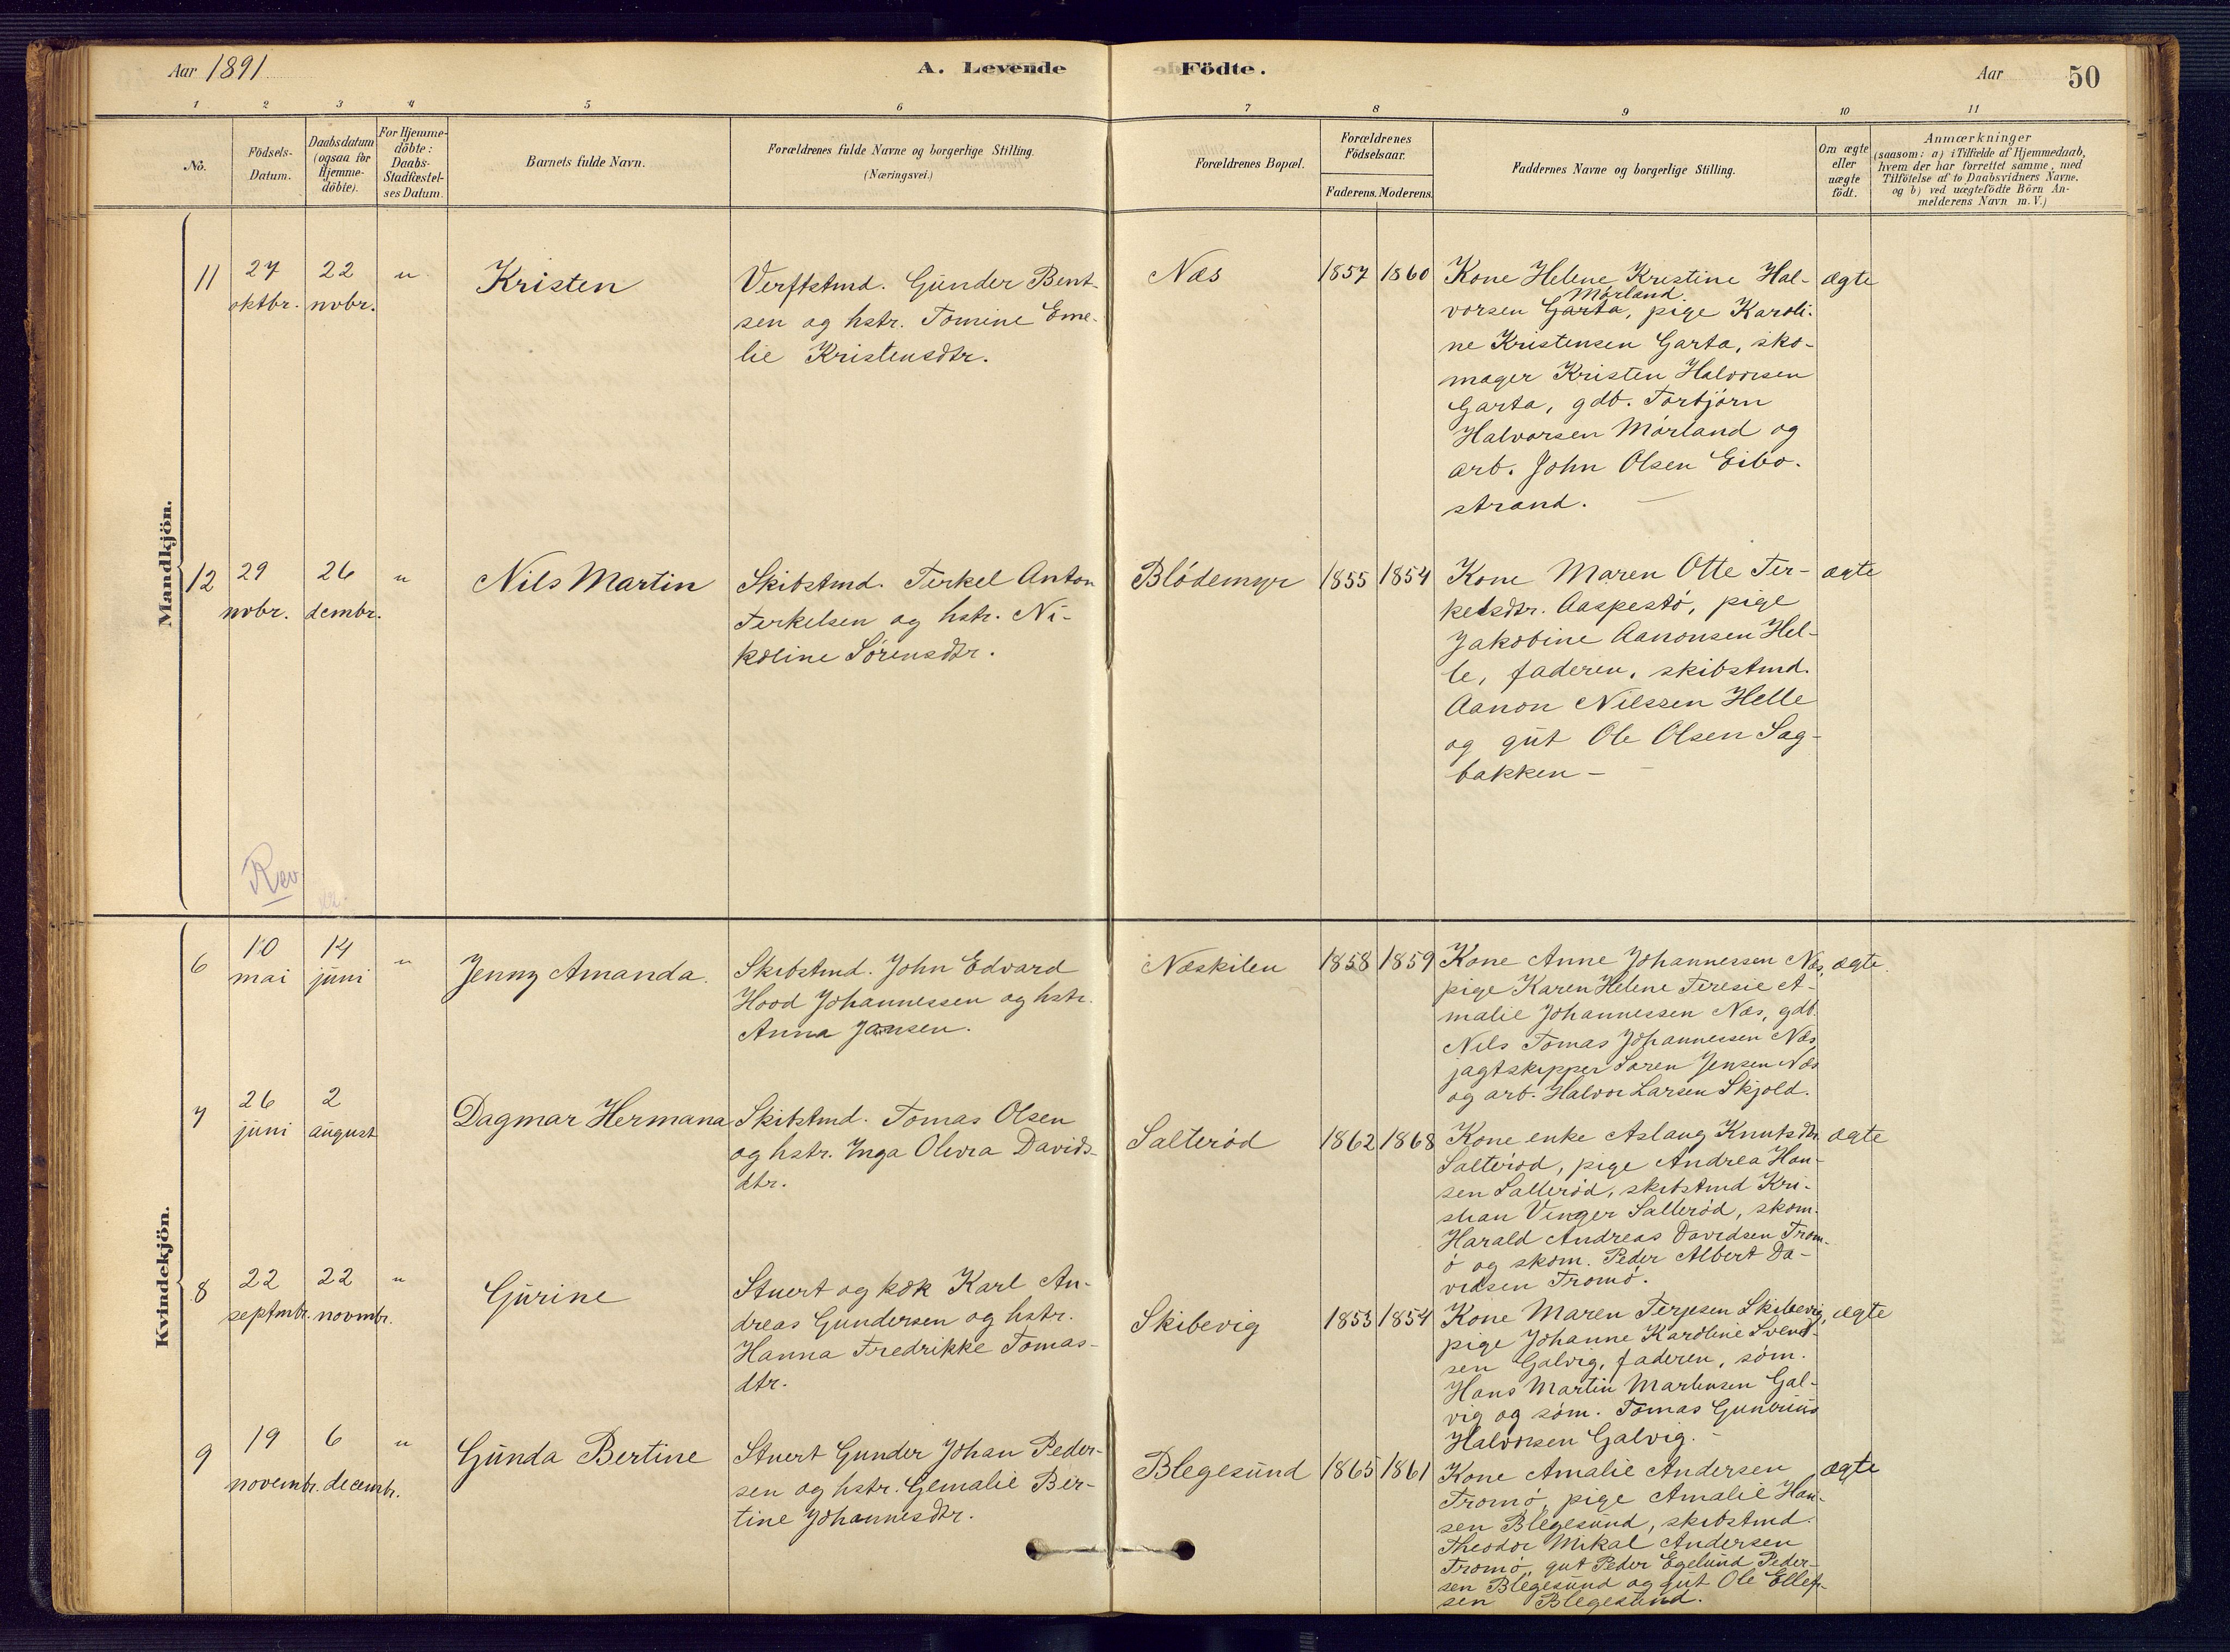 Aar 1891.
A. Levende Födte.
Aar
50
1 2 3 4 5 6 7 8 9 10 11
No.
Födsels-
Datum.
Daabsdatum
(ogsaa for
Hjemme-
döbte).
For Hjemme-
döbte:
Daabs-
Stadfæstel-
ses Datum.
Barnets fulde Navn.
Forældrenes fulde Navne og borgerlige Stilling.
(Næringsvei.)
Forældrenes Bopæl.
Forældrenes
Födselsaar.
Faderens. Moderens.
Faddernes Navne og borgerlige Stilling.
Om ægte
eller
uægte
födt.
Anmærkninger
(saasom: a) i Tilfælde af Hjemmedaab,
hvem der har forrettet samme, med
Tilföielse af to Daabsvidners Navne.
og b) ved uægtefödte Börn An-
melderens Navn m. V.)
Mandkjön.
11
27
oktbr.
22
nobr.
"
Kristen
Verftstmd. Gunder Bent-
sen og hstr. Tomine Eme-
lie Kristensdtr.
Næs
1857 1860
Kone Helene Kristine Hal-
Mørland.
vorsen Garta, pige Karoli-
ne Kristensen Garta, sko-
mager Kristen Halvorsen
Garta, gdb. Torbjørn
Halvorsen Mørland og
arb. John Olsen Eibo-
strand.
ægte
12
29
nobr.
26
dembr.
"
Nils Martin
Skibstmd. Terkel Anton
Terkelsen og hstr. Ni-
koline Sørensdtr.
Blødemyr
1855 1854
Kone Maren Otte Ter-
kelsdtr. Aaspestø, pige
Jakobine Aanonsen Hel-
le, faderen, skibstmd.
Aanon Nilssen Helle
og gut Ole Olsen Sag-
bakken —
ægte
Rev
Kvindekjön.
6
10
mai
14
juni
"
Jenny Amanda.
Skibstmd. John Edvard
Hood Johannessen og hstr.
Anna Jansen.
Næskilen
1858 1859
Kone Anne Johannessen Næs,
pige Karen Helene Teresie A-
malie Johannessen Næs, gdb.
Nils Tomas Johannessen Næs,
jagtskipper Søren Jensen Næs
og arb. Halvor Larsen Skjold.
ægte.
7
26
juni
2
august
Dagmar Hermana
Skibstmd. Tomas Olsen
og hstr. Inga Olivia Davids-
dtr.
Salterød
1862 1868
Kone enke Aslaug Knutsdtr.
Salterød, pige Andrea Han-
sen Salterød, skibstmd Kri-
stian Vinger Salterød, skom.
Harald Andreas Davidsen Trom-
ø og skom. Peder Albert Da-
vidsen Tromø.
ægte
8
22
septmbr.
22
novmbr.
"
Gurine
Stuert og kok Karl An-
dreas Gundersen og hstr.
Hanna Fredrikke Tomas-
dtr.
Skibevig
1853 1854
Kone Maren Terjesen Skibevig,
pige Johanne Karoline Svend-
sen Galvig, faderen, søm.
Hans Martin Martinsen Gal-
vig og søm. Tomas
Halvorsen Galvig. —
ægte
9
19
novembr.
6
decembr.
"
Gunda Bertine
Stuert Gunder Johan Peder-
sen og hstr. Gemalie Ber-
tine Johannesdtr.
Blegesund
1865 1861
Kone Amalie Andersen
Tromø, pige Amalie Han-
sen Blegesund, skibstmd.
Theodor Mikal Andersen
Tromø, gut Peder Egelund Peder-
sen Blegesund og gut Ole Ellef-
sen Blegesund.
ægte